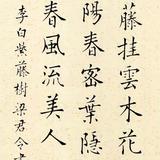 藤挂雲木花
陽春密葉隱
春風流美人
李白紫藤樹梁君令